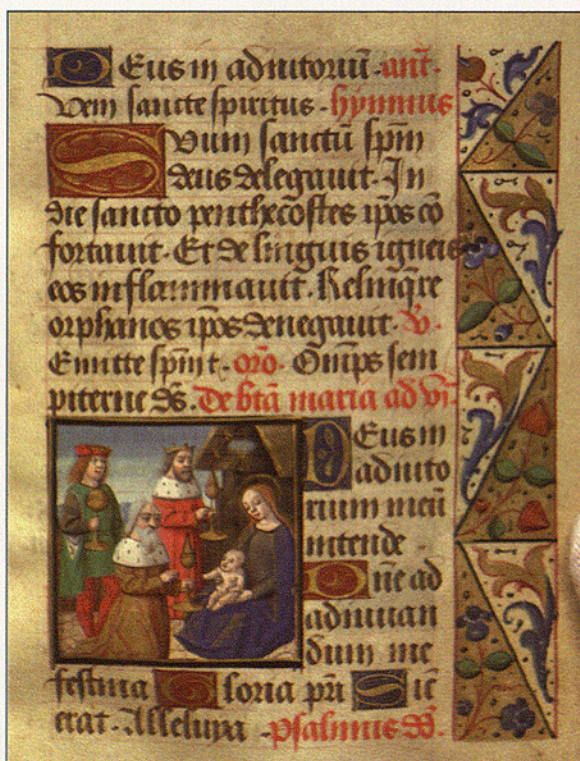 Deus in adiutoriū · ant̄·
Veni sancte spiritus · hympnus
Suum sanctū sp̄m
deus delegauit · In
die sancto penthecostes ip̄os cō
fortauit · Et de linguis igneis
eos inflammauit · Relinq̄re
orphanos ip̄os denegauit · v̄·
Emitte sp̄m t · or̄o · Om̄ps sem
piterne ds̄ · De btā maria ad vi·
Deus in
adiuto
rium meū
intende ·
Dn̄e ad
adiuuan
dum me
festina Gloria pr̄i Sic̄
erat · Alleluya · psalmus